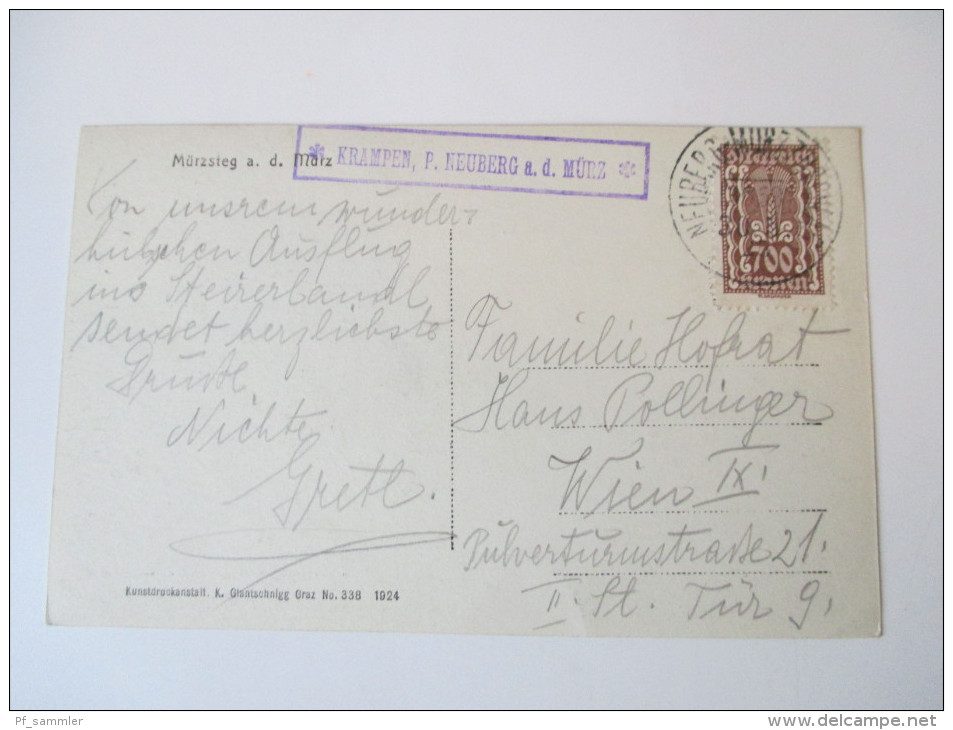 Mürzsteg a. d. Mürz
* KRAMPEN, P. NEUBERG a. d. MÜRZ *
Von unsrem wunder-
hübschen Ausflug
ins Steirerlandl
sendet herzlichste
Grüße
Nichte
Gretl.
NEUBERG
700
Familie Hofrat
Hans Pollinger
Wien IX.
Pulverturmstraße 21.
II. St. Tür 9.
Kunstdruckanstalt. K. Glantschnigg Graz No. 338 1924
Pf_sammler
www.delcampe.net